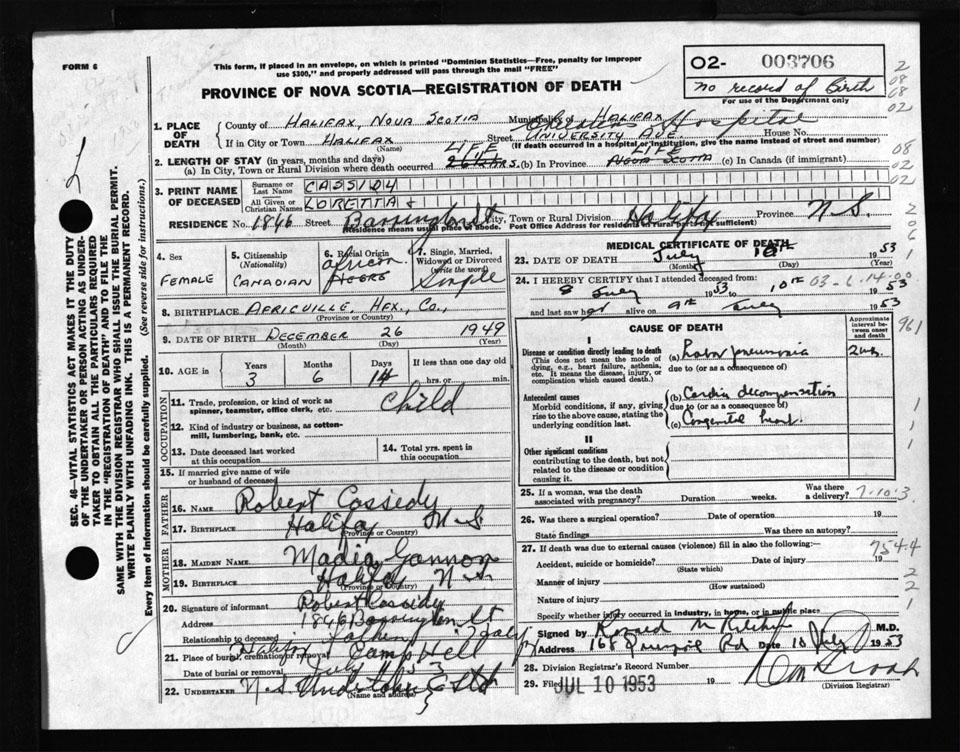 FORM 6
This form, if placed in an envelope, on which is printed "Dominion Statistics—Free, penalty for improper
use $300," and properly addressed will pass through the mail "FREE"
PROVINCE OF NOVA SCOTIA—REGISTRATION OF DEATH
O2- 003706
no record of Birth
For use of the Department only
1. PLACE OF DEATH
County of HALIFAX, NOVA SCOTIA Municipality of HALIFAX Hospital
If in City or Town HALIFAX Street UNIVERSITY AVE. House No.
(Name) (If death occurred in a hospital or institution, give the name instead of street and number)
2. LENGTH OF STAY (in years, months and days)
(a) In City, Town or Rural Division where death occurred LIFE (b) In Province LIFE NOVA SCOTIA (c) In Canada (if immigrant)
3. PRINT NAME OF DECEASED
Surname or Last Name CASSIDY
All Given or Christian Names LORETTA
RESIDENCE No. 1846 Street Barrington St City, Town or Rural Division Halifax Province N.S.
Residence means usual place of abode. Post Office Address for residents of rural parts not sufficient)
4. Sex FEMALE
5. Citizenship (Nationality) CANADIAN
6. Racial Origin African NEGRO
7. Single, Married, Widowed or Divorced (write the word) Single
8. BIRTHPLACE AFRICVILLE, HFX., CO.,
(Province or Country)
9. DATE OF BIRTH DECEMBER 26 1949
(Month) (Day) (Year)
10. AGE in Years 3 Months 6 Days 14 If less than one day old hrs. or min.
OCCUPATION
11. Trade, profession, or kind of work as spinner, teamster, office clerk, etc. Child
12. Kind of industry or business, as cotton-mill, lumbering, bank, etc.
13. Date deceased last worked at this occupation
14. Total yrs. spent in this occupation
15. If married give name of wife or husband of deceased
FATHER
16. NAME Robert Cassiedy
17. BIRTHPLACE Halifax N.S
(Province or Country)
MOTHER
18. MAIDEN NAME Madia Gannon
19. BIRTHPLACE Halifax N.S.
(Province or Country)
20. Signature of informant Robert Cassidy
Address 1846 Barrington St
Relationship to deceased Father
21. Place of burial, cremation or removal Halifax Camphill
Date of burial or removal July
22. UNDERTAKER N.S. Undertaking Co Ltd
(Name and Address)
MEDICAL CERTIFICATE OF DEATH
23. DATE OF DEATH July 10th 1953
(Month) (Day) (Year)
24. I HEREBY CERTIFY that I attended deceased from:
8 July 1953 to 10th 1953
03-6-14-00
and last saw her alive on 9th July 1953
CAUSE OF DEATH
Approximate interval between onset and death
I
Disease or condition directly leading to death (a) Lobar pneumonia
(This does not mean the mode of dying, e.g., heart failure, asthenia, etc. It means the disease, injury, or complication which caused death.)
due to (or as a consequence of)
Antecedent causes (b) Cardiac decompensation
Morbid conditions, if any, giving rise to the above cause, stating the underlying condition last.
due to (or as a consequence of)
(c) Congenital heart.
II
Other significant conditions
contributing to the death, but not related to the disease or condition causing it.
25. If a woman, was the death associated with pregnancy? Duration weeks. Was there a delivery?
26. Was there a surgical operation? Date of operation 19
State findings Was there an autopsy?
27. If death was due to external causes (violence) fill in also the following:—
7544
Accident, suicide or homicide? Date of injury 19
(State which)
Manner of injury
(How sustained)
Nature of injury
Specify whether injury occurred in industry, in home, or in public place
Signed by Ronald M. M.D.
Address 168 Rd Date 10 July 1953
28. Division Registrar's Record Number
29. Filed JUL 10 1953 19
(Division Registrar)
SEC. 46—VITAL STATISTICS ACT MAKES IT THE DUTY
OF THE UNDERTAKER OR PERSON ACTING AS UNDER-
TAKER TO OBTAIN ALL THE PARTICULARS REQUIRED
IN THE "REGISTRATION OF DEATH" AND TO FILE THE
SAME WITH THE DIVISION REGISTRAR WHO SHALL ISSUE THE BURIAL PERMIT.
WRITE PLAINLY WITH UNFADING INK. THIS IS A PERMANENT RECORD.
Every item of information should be carefully supplied. (See reverse side for instructions.)